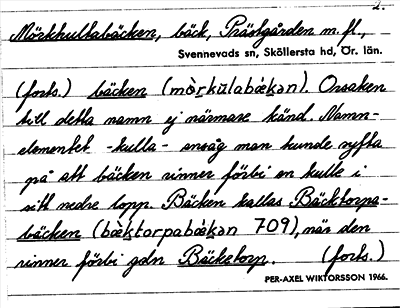 2.
Mörkhultabäcken, bäck, Prästgården m. fl.,
Svennevads sn, Sköllersta hd, Ör. län.
(forts.) bäcken (mòrkùlabækən). Orsaken
till detta namn ej närmare känd. Namn-
elementet -kulla- ansåg man kunde syfta
på att bäcken rinner förbi en kulle i
sitt nedre lopp. Bäcken kallas Bäcktorpa-
bäcken (bæktorpabækən 709), när den
rinner förbi gdn Bäcketorp. (forts.)
PER-AXEL WIKTORSSON 1966.